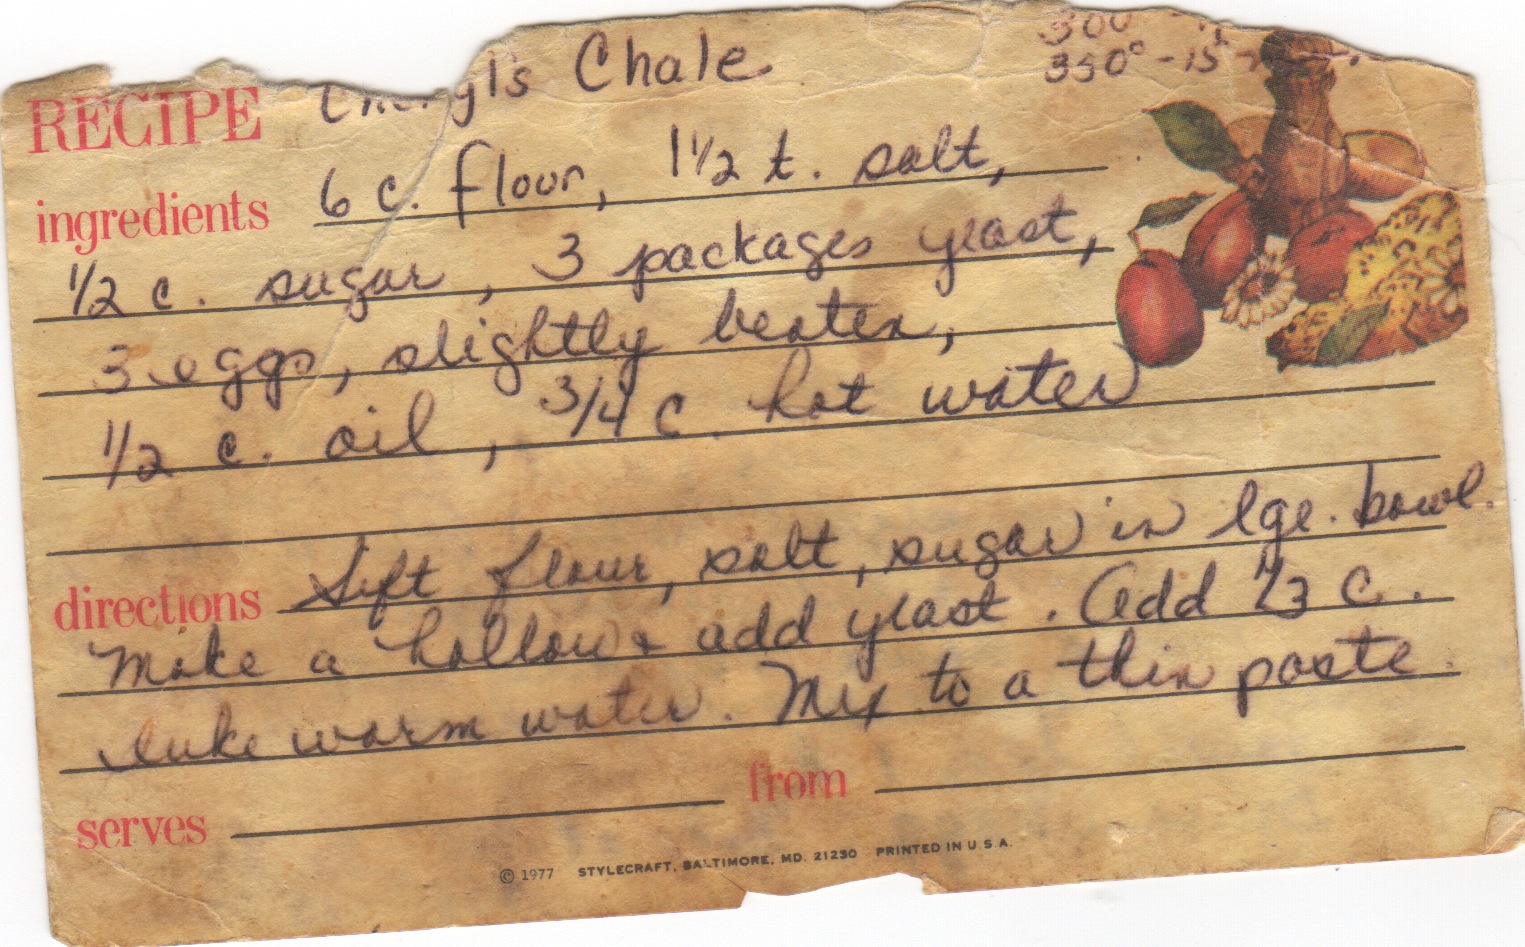 300
350° - 15
Cheryl's Chale
RECIPE
ingredients 6 c. flour, 1 1/2 t. salt,
1/2 c. sugar, 3 packages yeast,
3 eggs, slightly beaten,
1/2 c. oil, 3/4 c. hot water
directions Sift flour, salt, sugar in lge. bowl.
Make a hollow & add yeast. Add 1/3 c.
luke warm water. Mix to a thin paste.
serves from
© 1977 STYLECRAFT, BALTIMORE, MD. 21230 PRINTED IN U.S.A.